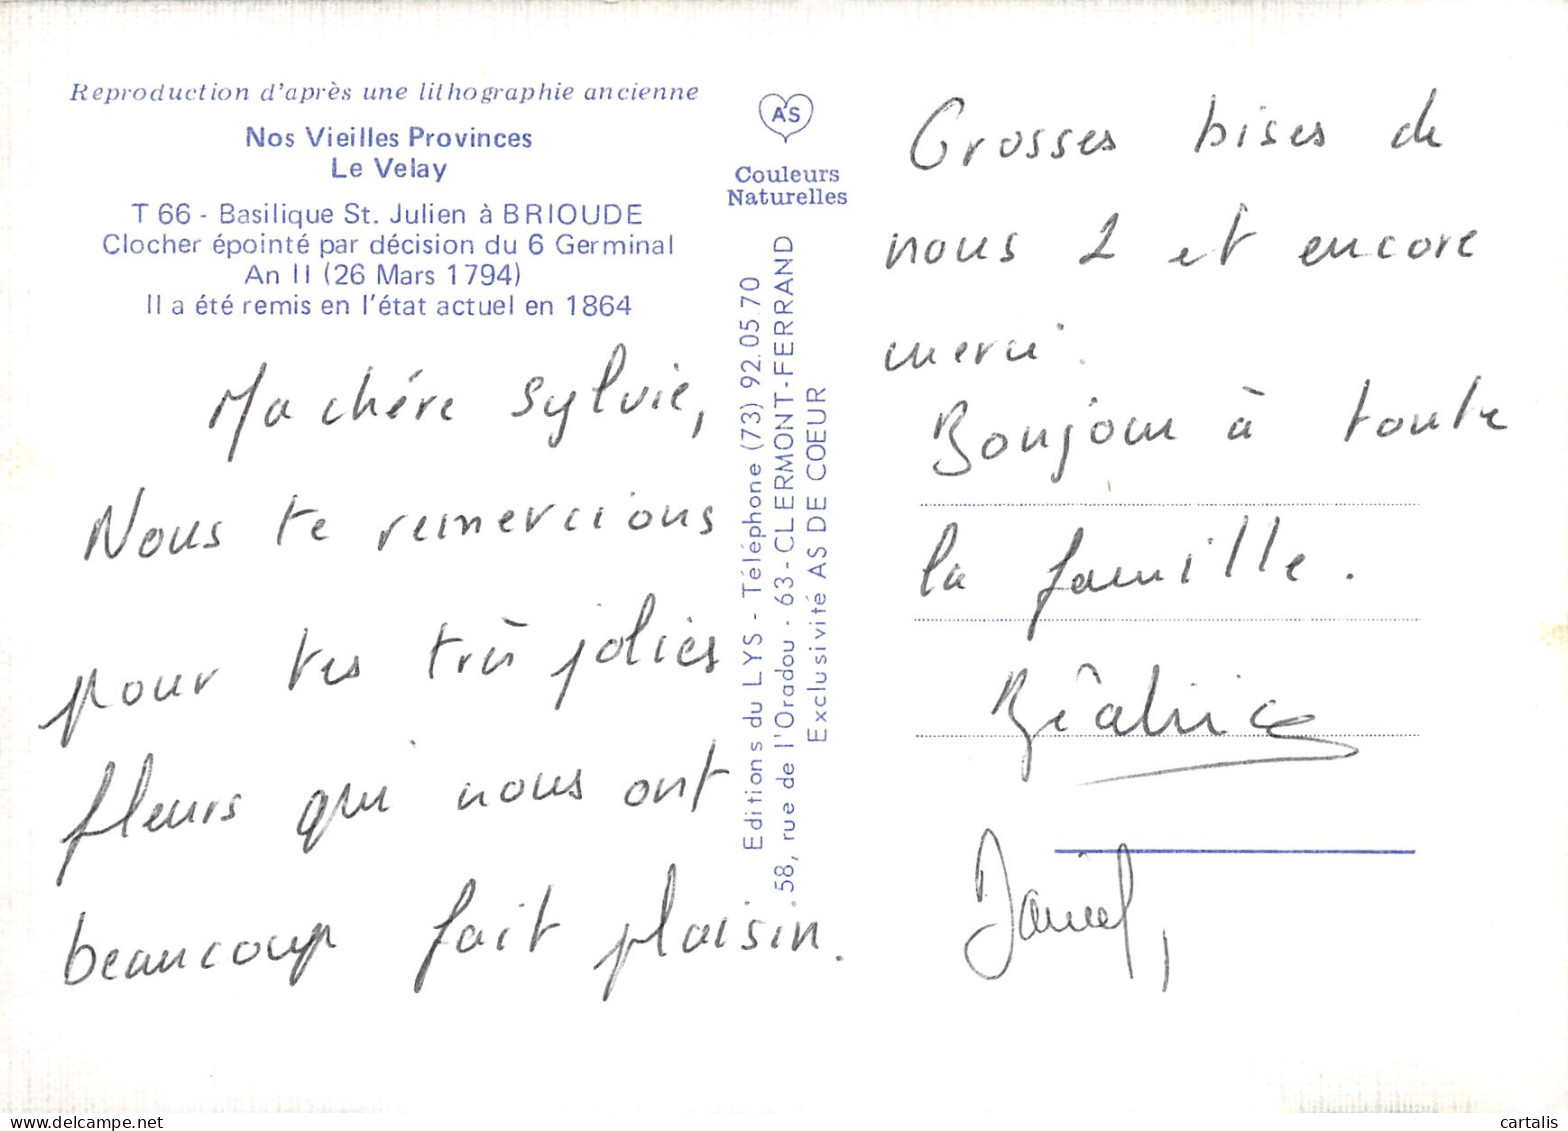 Reproduction d'après une lithographie ancienne
Nos Vieilles Provinces
Le Velay
T 66 - Basilique St. Julien à BRIOUDE
Clocher épointé par décision du 6 Germinal
An II (26 Mars 1794)
Il a été remis en l'état actuel en 1864
Ma chére Sylvie,
Nous te remercions
pour tes très jolies
fleurs qui nous ont
beaucoup fait plaisir.
AS
Couleurs
Naturelles
Editions du LYS - Téléphone (73) 92.05.70
58, rue de l'Oradou - 63-CLERMONT-FERRAND
Exclusivité AS DE COEUR
Grosses bises de
nous 2 et encore
merci.
Bonjour à toute
la famille.
Béatrice
Daniel,
cartalis